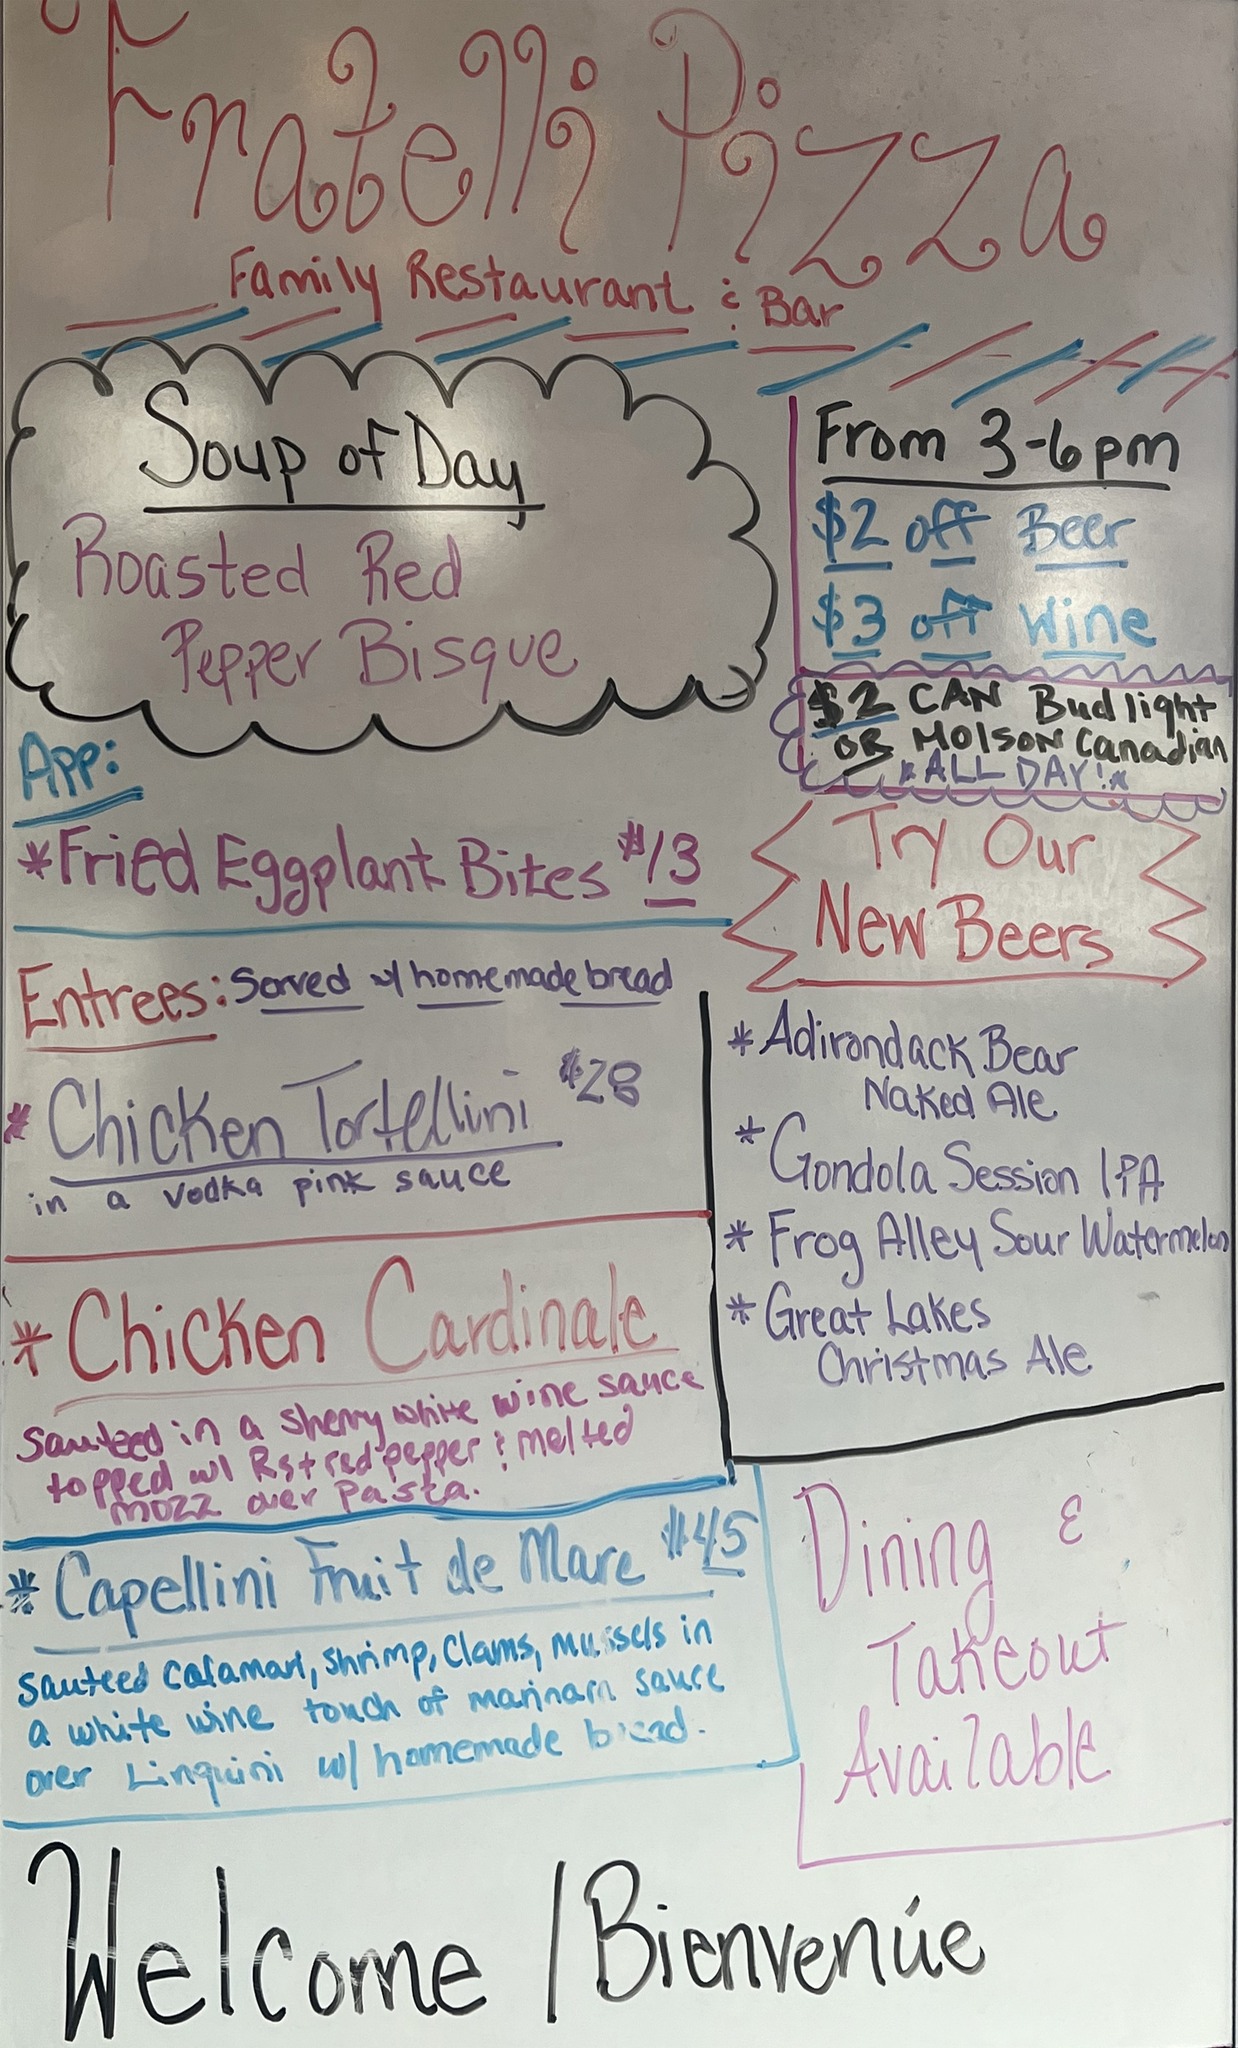 Fratelli Pizza
Family Restaurant & Bar
Soup of Day
Roasted Red
Pepper Bisque
App:
*Fried Eggplant Bites $13
Entrees: Served w/ homemade bread
* Chicken Tortellini $28
in a vodka pink sauce
* Chicken Cardinale
Sauteed in a sherry white wine sauce
topped w/ Rst red pepper & melted
mozz over Pasta.
* Capellini Fruit de Mare $45
Sauteed Calamari, Shrimp, Clams, Mussels in
a white wine touch of marinara sauce
over Linquini w/ homemade bread.
From 3-6pm
$2 off Beer
$3 off Wine
$2 CAN Bud light
OR MOlSON Canadian
*ALL DAY!*
Try Our
New Beers
* Adirondack Bear
Naked Ale
* Gondola Session IPA
* Frog Alley Sour Watermelon
* Great Lakes
Christmas Ale
Dining &
Takeout
Available
Welcome / Bienvenúe